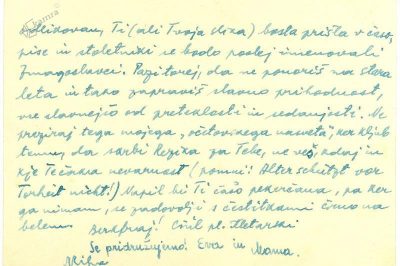 odlikovan, Ti (ali Tvoja slika) bosta prišla v časo-
pise in stoletniki se bodo poslej imenovali
Zmagoslavci. Pazi torej, da ne ponoriš na stara
leta in tako zapraviš slavno prihodnost,
vse slavnejšo od preteklosti in sedanjosti. Ne
preziraj tega mojega „očetovskega nasveta", ker kljub
temu, da skrbi Rezika za Tebe, ne veš, kdaj in
kje Te čaka nevarnost (pomni: Alter schützt vor
Torheit nicht!) Napil bi Ti čašo pekrčana, pa ker
ga nimam, se zadovolji s čestitkami črno na
belem.
Se pridružujemo! Eva in Mama.
Miha